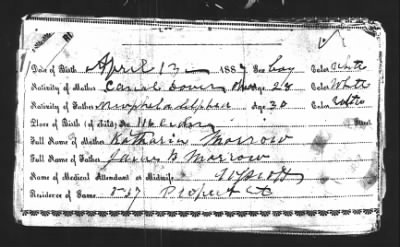 Date of Birth April 13 1887 Sex boy Color White
Nativity of Mother Canal Dover Ohio Age 28 Color White
Nativity of Father Newphiladelphia Age 30 Color
Place of Birth (of city) No. 116 Street
Full Name of Mother Katharin Morrow
Full Name of Father James B Morrow
Name of Medical Attendant or Midwife
Residence of Same 587 Prospect St